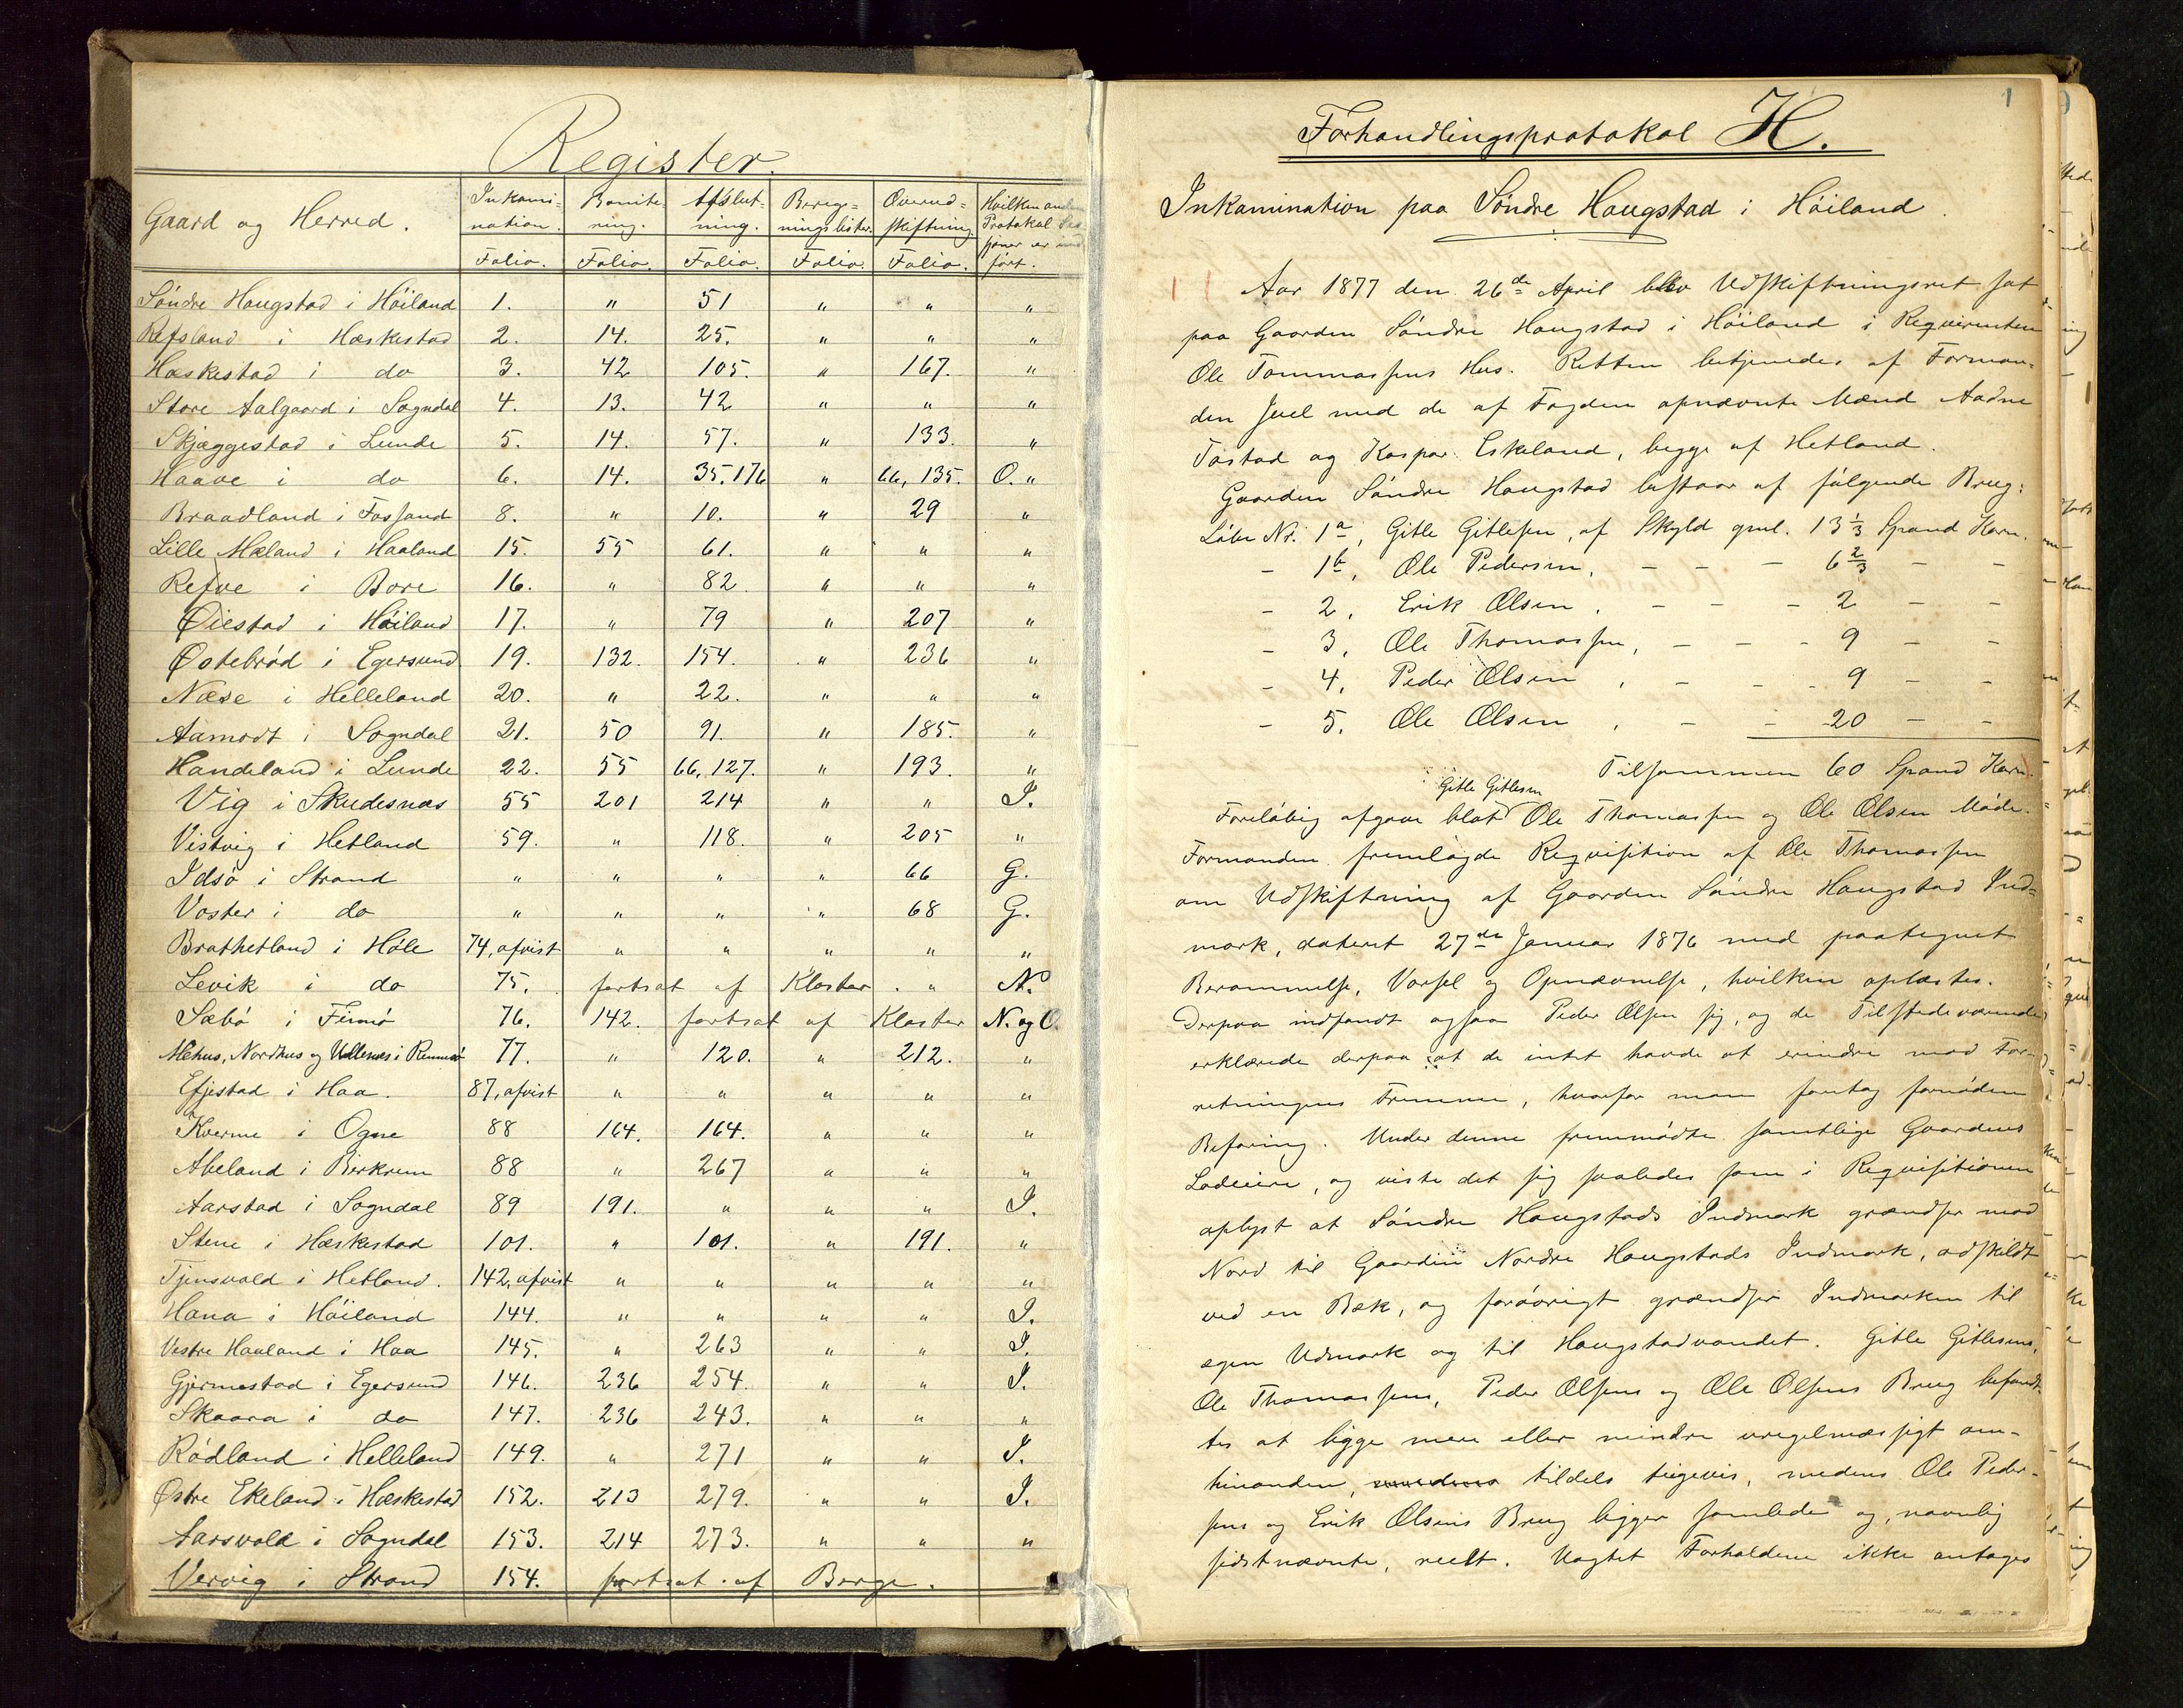 Register.
Gaard og Herred. Inkami- Bonite- Afslut- Bereg- Overud- Hvilken anden
nation. ring. ning. ningslister. skiftning. Protokal
Folio. Folio. Folio. Folio. Folio. ført.
Söndre Haugstad i Höiland 1. " 51 " " "
Refsland i Hæskestad 2. 14. 25. " " "
Hæskestad i do 3. 42 105. " 167. "
Store Aalgaard i Sogndal 4. 13. 42 " " "
Skjæggestad i Lunde 5. 14. 57. " 133. "
Haave i do 6. 14. 35. 176 " 66, 135. O. "
Braadland i Fossand 8. " 10. " 29 "
Lille Mæland i Haaland 15. 55 61. " " "
Refve i Bore 16. " 82 " " "
Öiestad i Höiland 17. " 79 " 207 "
Östebröd i Egersund 19. 132. 154. " 236 "
Næse i Helleland 20. " 22. " " "
Aamodt i Sogndal 21. 50 91. " 185. "
Handeland i Lunde 22. 55 66, 127. " 193. "
Vig i Skudesnæs 55 201 214 " " I.
Vistvig i Hetland 59. " 118. " 205 "
Idsö i Strand " " " " 66 G.
Voster i do " " " " 68 G.
Brathetland i Höle 74, afvist " " " " "
Levik i do 75. fortsat af Kloster. " N.
Sæbö i Finnö 76. 142. fortsat af Kloster N. og O.
Mehus, Nordhus og Udlenæs i Rennesö 77. " 120. " 212. "
Efjestad i Haa. 87, afvist " " " " "
Kverme i Ogne 88 164. 164. " " "
Abeland i Birkrem 88 " 267 " " "
Aarstad i Sogndal 89 191. " " " I.
Stene i Hæskestad 101. " 101. " 191. "
Tjensvold i Hetland. 142, afvist " " " " "
Hana i Höiland 144. " " " " I.
Vestre Haaland i Haa 145. " 263 " " I.
Gjermestad i Egersund 146. 236 254. " " I.
Skaara i do 147. 236 243. " " "
Rödland i Helleland 149. " 271 " " I.
Östre Ekeland i Hæskestad 152. 213 279. " " I.
Aarsvold i Sogndal 153. 214 273. " " "
Vervig i Strand 154. fortsat af Borge.
1
Forhandlingsprotokal H.
Inkamination paa Söndre Haugstad i Höiland.
Aar 1877 den 26de April blev Udskiftningsret sat
paa Gaarden Söndre Haugstad i Höiland i Reqvirenten
Ole Tommassens Hus. Retten betjenedes af Forman-
den Juel med de af Fogden opnævnte Mænd Aadne
Tastad og Kaspar Eskeland, begge af Hetland.
Gaarden Söndre Haugstad bestaar af fölgende Brug:
Löbe Nr. 1a, Gitle Gitlesen, af Skyld gml. 13 1/3 Spand Korn.
- 1b, Ole Pedersen, - - - 6 2/3 - -
- 2, Erik Olsen, - - - 2 - -
- 3, Ole Thomassen, - - - 9 - -
- 4, Peder Olsen, - - - 9 - -
- 5, Ole Olsen, - - 20 - -
Tilsammen 60 Spand Korn.
Gitle Gitlesen
Forelöbig afgave blot Ole Thomassen og Ole Olsen Möde.
Formanden fremlagde Reqvisition af Ole Thomassen
om Udskiftning af Gaarden Söndre Haugstad Ind-
mark, dateret 27de Januar 1876 med paategnet
Berammelse, Varsel og Opnævnelse, hvilken oplæstes.
Derpaa indfandt ogsaa Peder Olsen sig, og de Tilstedeværende
erklærede derpaa at de intet havde at erindre mod For-
retningens Fremme, hvorfor man foretog fornöden
Befaring. Under denne fremmödte samtlige Gaardens
Lodeiere, og viste det sig saaledes som i Reqvisitionen
oplyst at Söndre Haugstads Indmark grændser mod
Nord til Gaarden Nordre Haugstads Indmark, adskildt
ved en Bæk, og forövrigt grændser Indmarken til
egen Udmark og til Haugstadvandet. Gitle Gitlesens,
Ole Thomassens, Peder Olsens og Ole Olsens Brug befandt-
tes at ligge mere eller mindre uregelmæssigt om-
hinanden, medens tildels teigevis, medens Ole Peder-
sens og Erik Olsens Brug ligger samlede og, navnlig
sidstnævnte, reelt. Uagtet Forholdene ikke antages